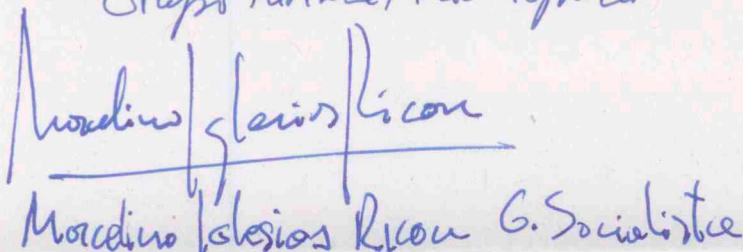 Grupo
Marcelino Iglesias Ricou
Marcelino Iglesias Ricou G. Socialista